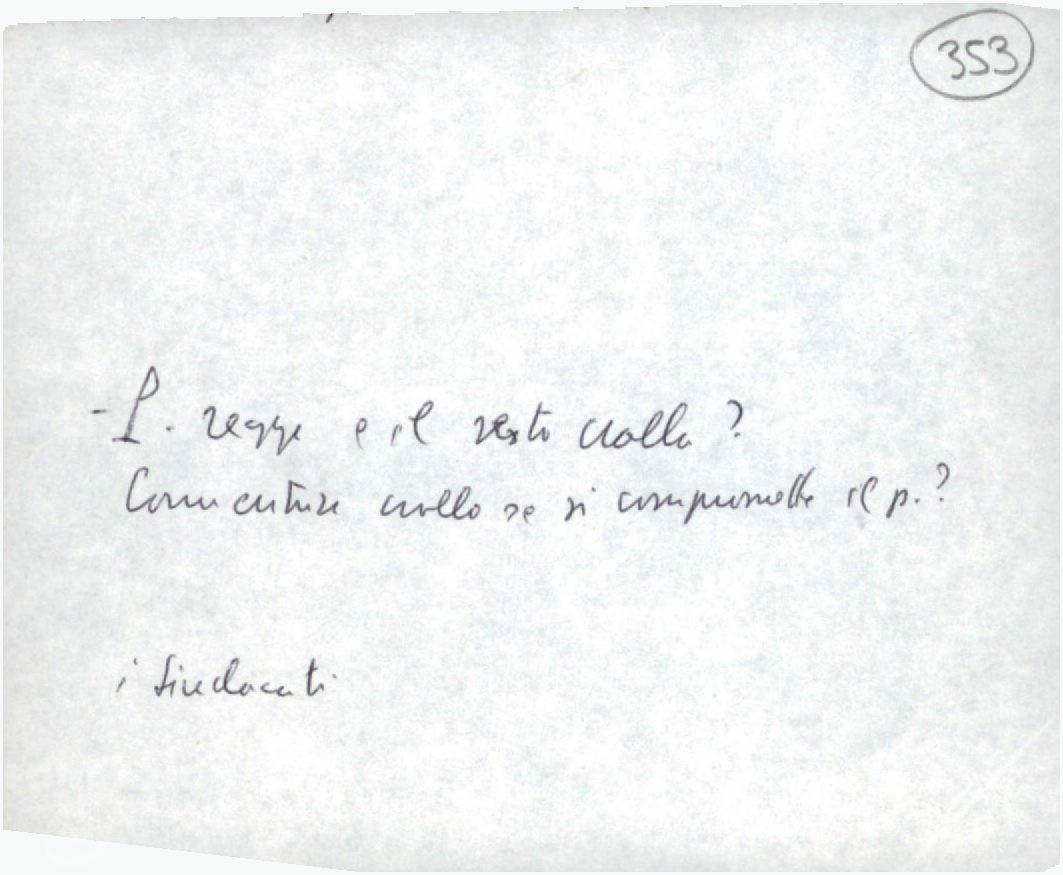 353
- P. regge e il resto crolla?
Consentire crollo se si compromette il p.?
i sindacati